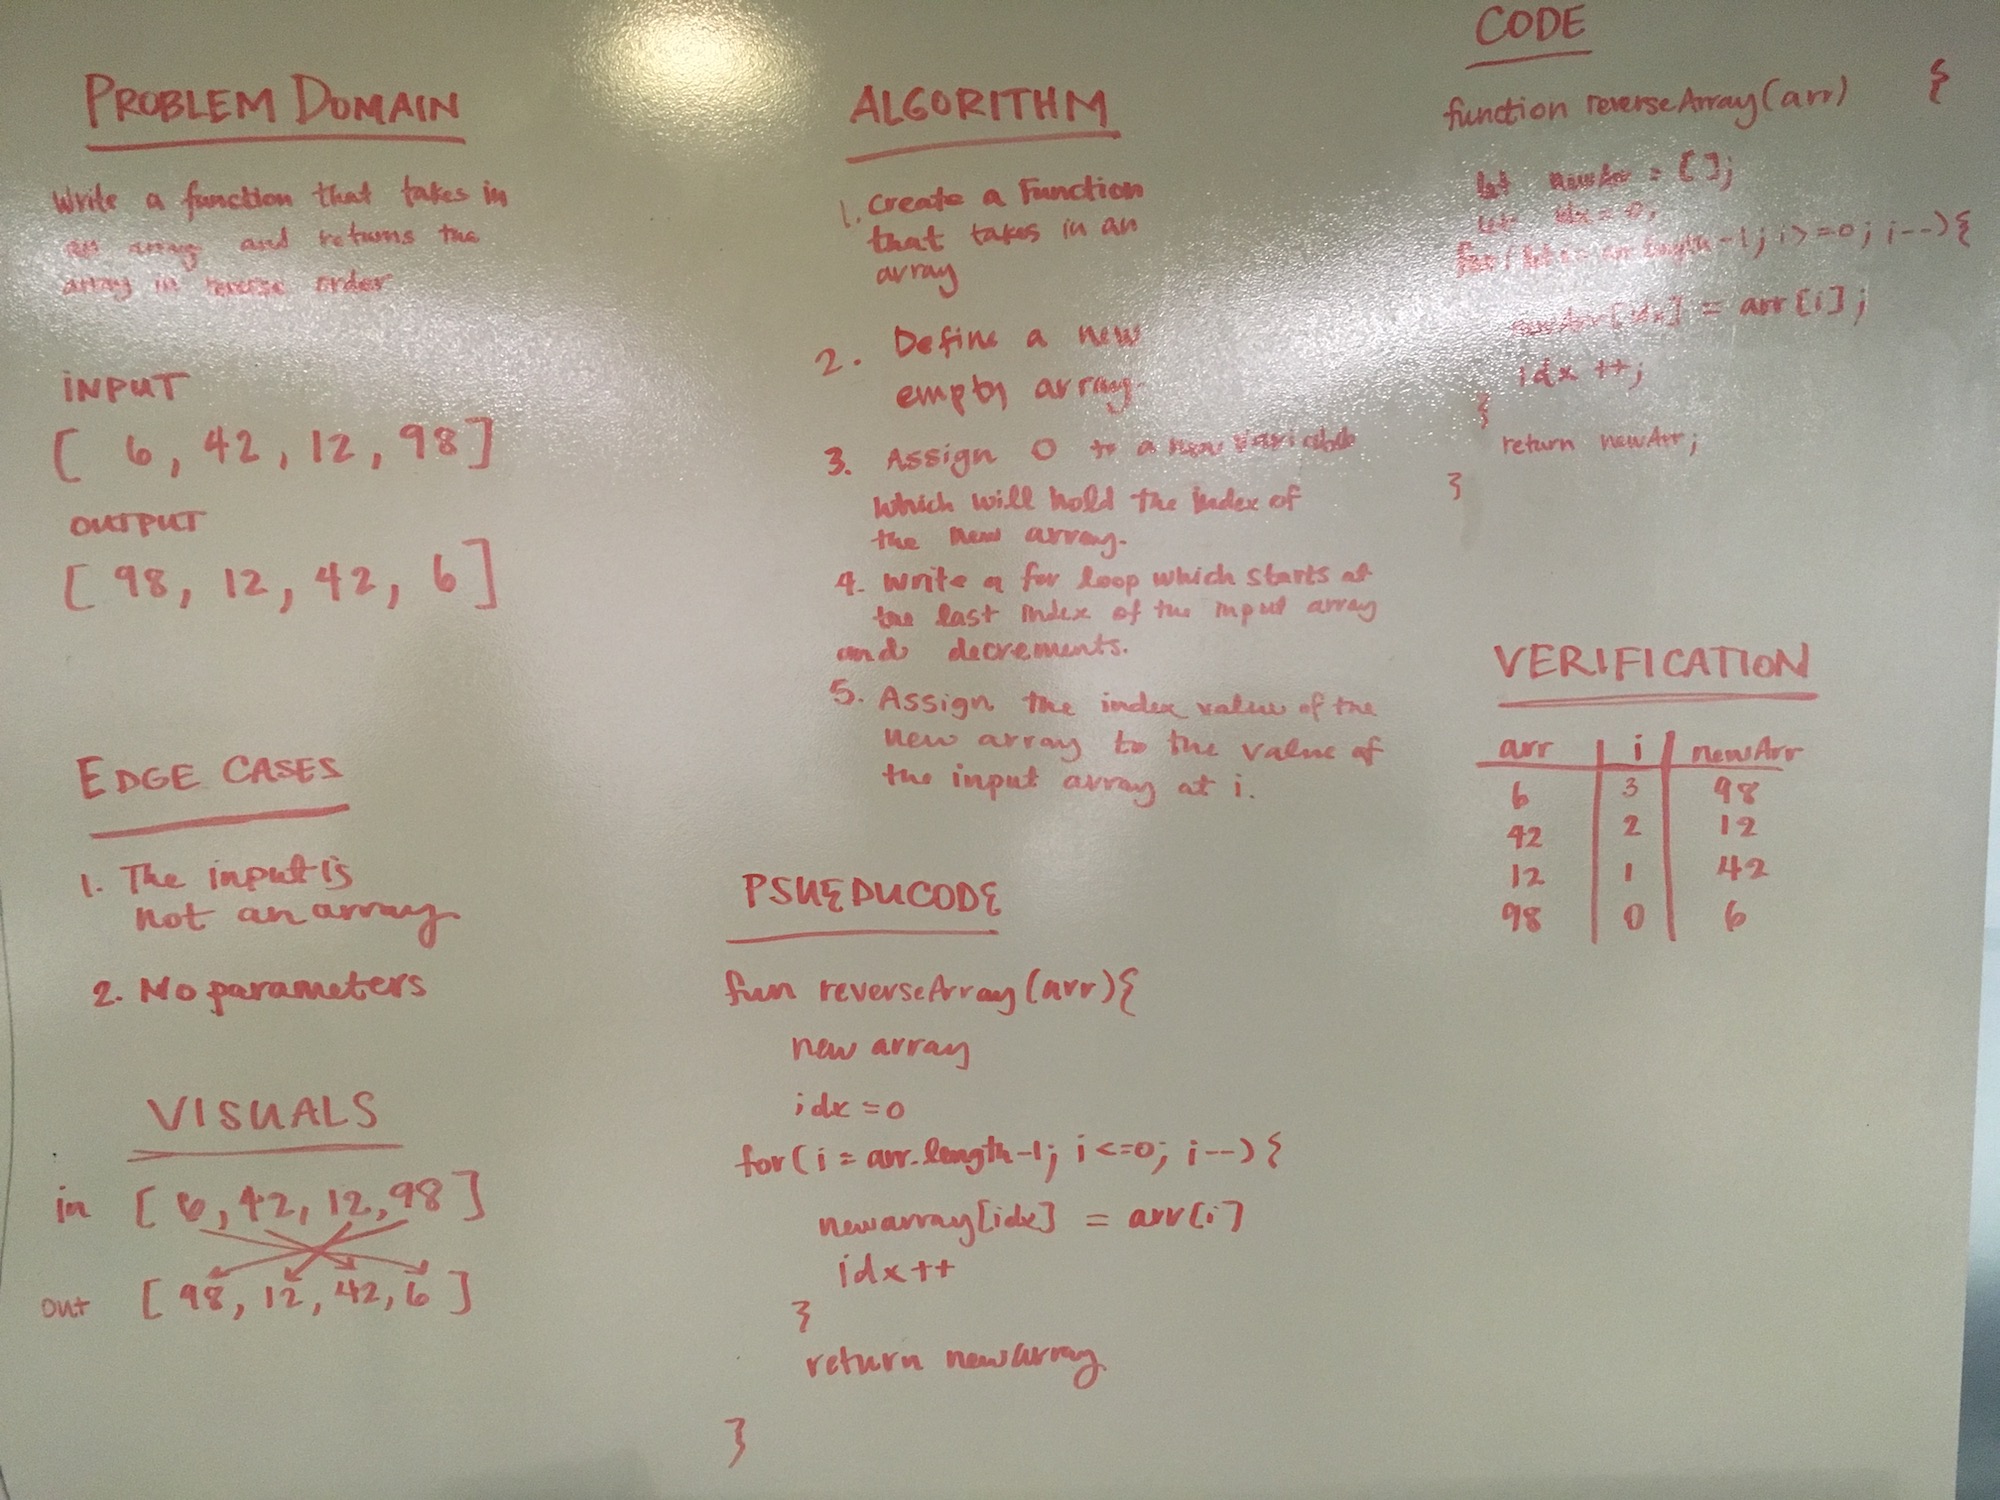 PROBLEM DOMAIN
Write a function that takes in
an array and returns the
array in reverse order
INPUT
[ 6, 42, 12, 98 ]
OUTPUT
[ 98, 12, 42, 6 ]
EDGE CASES
1. The input is
not an array
2. No parameters
VISUALS
in [ 6, 42, 12, 98 ]
out [ 98, 12, 42, 6 ]
ALGORITHM
1. Create a Function
that takes in an
array
2. Define a new
empty array.
3. Assign 0 to a new variable
which will hold the index of
the new array.
4. Write a for loop which starts at
the last index of the input array
and decrements.
5. Assign the index value of the
new array to the value of
the input array at i.
PSUEDUCODE
fun reverseArray(arr){
new array
idx = 0
for( i = arr.length-1; i <=0; i--) {
newarray[idx] = arr[i]
idx++
}
return newarray
}
CODE
function reverseArray(arr) {
let newArr = [];
let idx = 0;
for(let i = arr.length-1; i>=0; i--){
newArr[idx] = arr[i];
idx ++;
}
return newArr;
}
VERIFICATION
arr | i | newArr
6 3 98
42 2 12
12 1 42
98 0 6